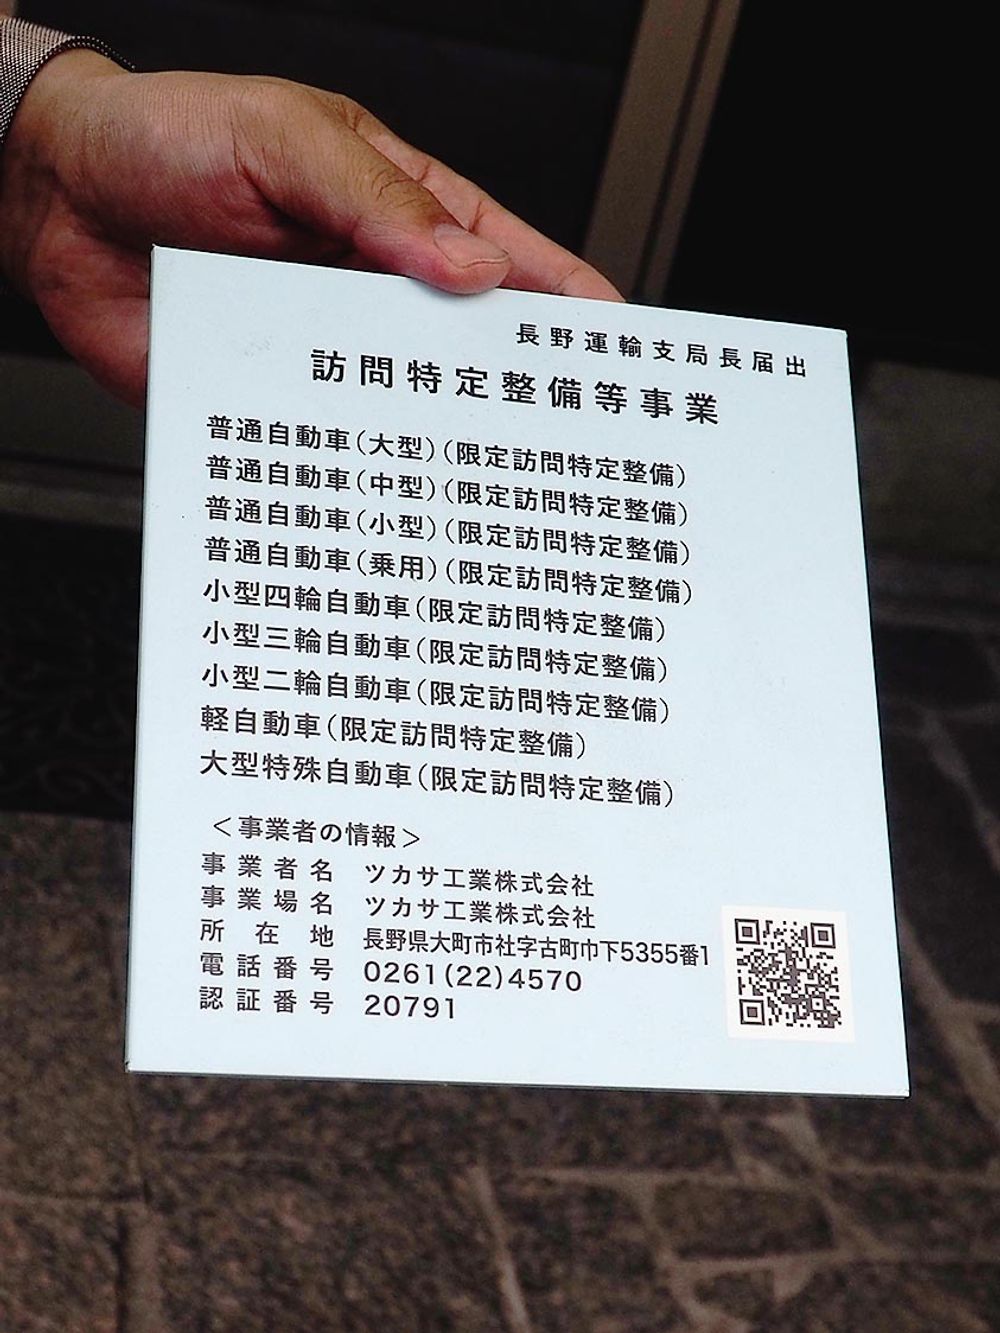 長野運輸支局長届出
訪問特定整備等事業
普通自動車(大型)(限定訪問特定整備)
普通自動車(中型)(限定訪問特定整備)
普通自動車(小型)(限定訪問特定整備)
普通自動車(乗用)(限定訪問特定整備)
小型四輪自動車(限定訪問特定整備)
小型三輪自動車(限定訪問特定整備)
小型二輪自動車(限定訪問特定整備)
軽自動車(限定訪問特定整備)
大型特殊自動車(限定訪問特定整備)
<事業者の情報>
事業者名 ツカサ工業株式会社
事業場名 ツカサ工業株式会社
所在地 長野県大町市社字古町巾下5355番1
電話番号 0261(22)4570
認証番号 20791